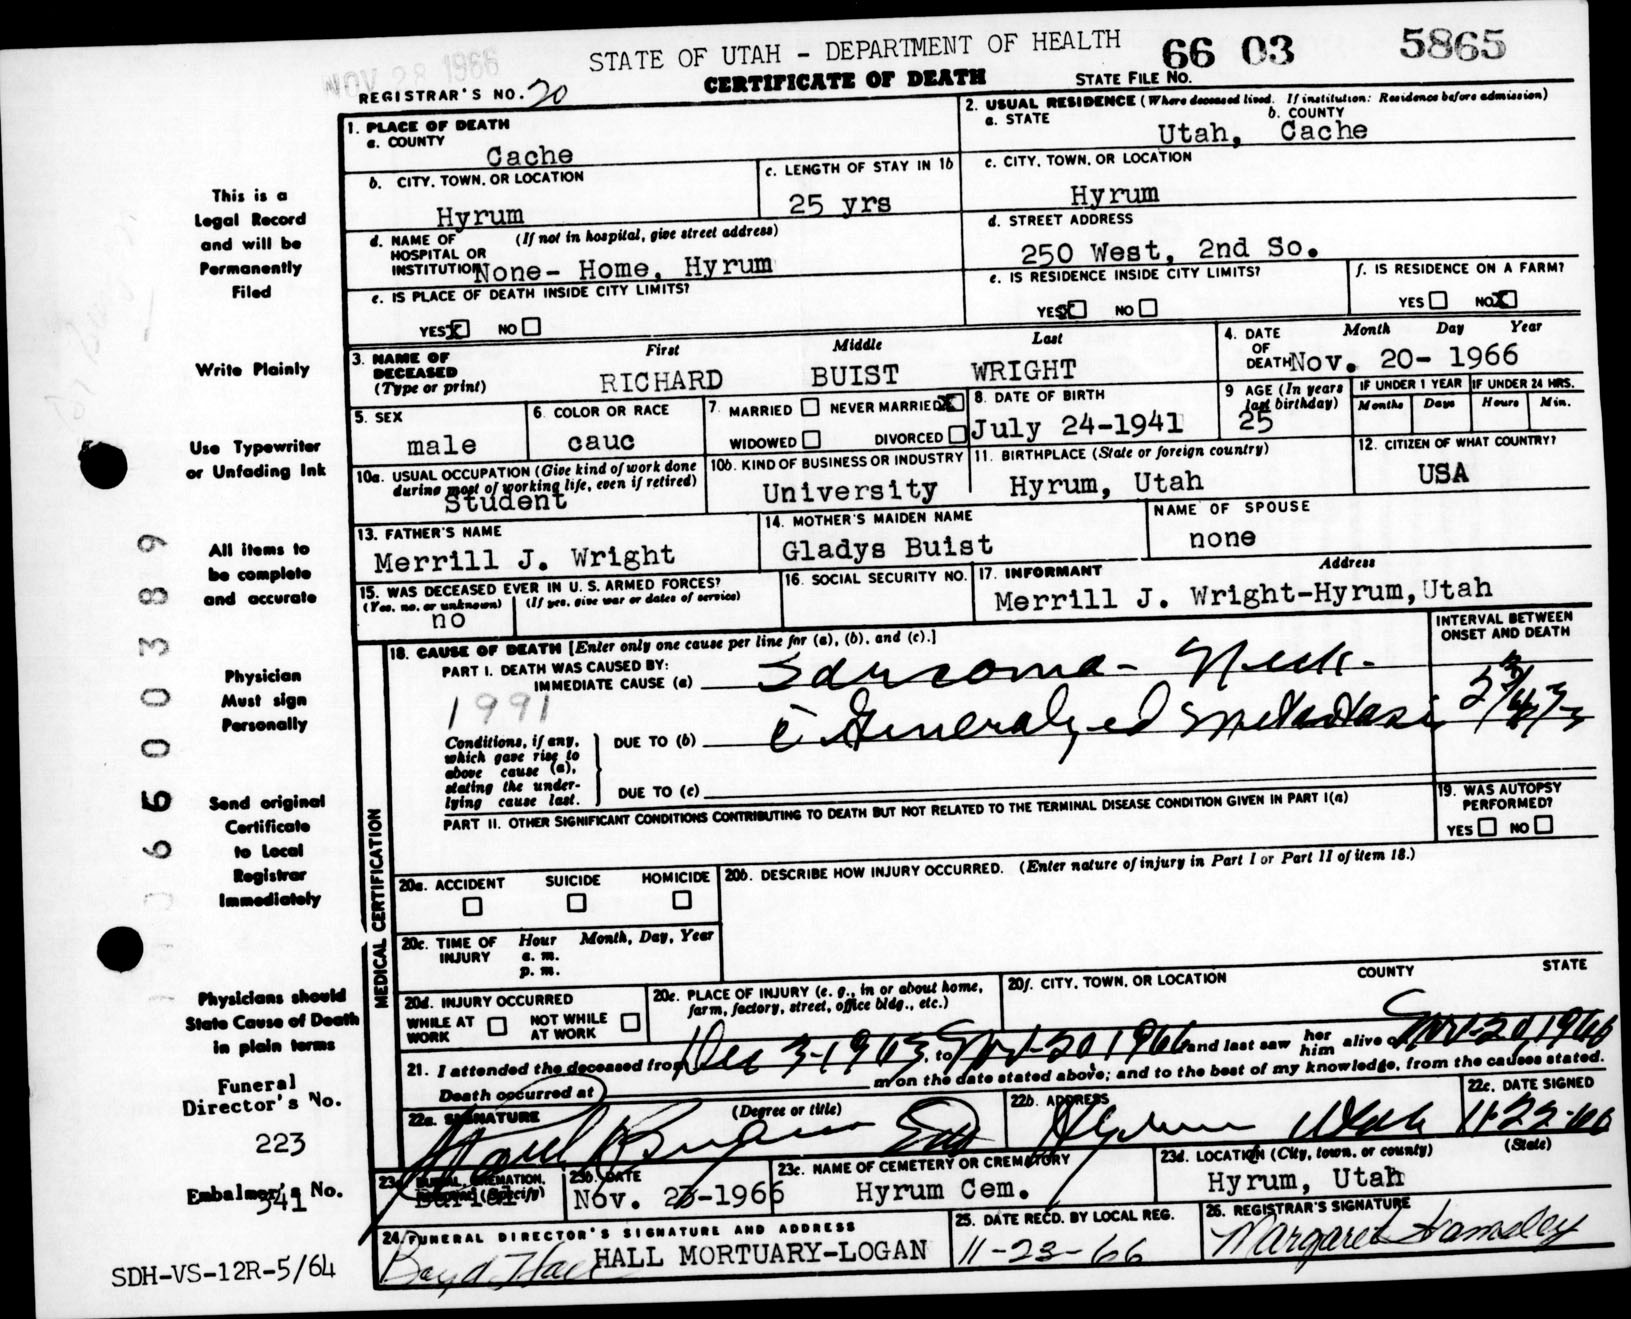 NOV 28 1966
STATE OF UTAH - DEPARTMENT OF HEALTH
66 03 5865
CERTIFICATE OF DEATH STATE FILE No.
REGISTRAR'S NO. 20
This is a
Legal Record
and will be
Permanently
Filed
Write Plainly
Use Typewriter
or Unfading Ink
All items to
be complete
and accurate
Physician
Must sign
Personally
Send original
Certificate
to Local
Registrar
Immediately
Physicians should
State Cause of Death
in plain terms
Funeral
Director's No.
223
Embalmer's No.
541
SDH-VS-12R-5/64
1. PLACE OF DEATH
a. COUNTY
Cache
b. CITY, TOWN, OR LOCATION
Hyrum
c. LENGTH OF STAY IN 1b
25 yrs
d. NAME OF HOSPITAL OR INSTITUTION (If not in hospital, give street address)
None- Home, Hyrum
e. IS PLACE OF DEATH INSIDE CITY LIMITS?
YES X NO
2. USUAL RESIDENCE (Where deceased lived. If institution: Residence before admission)
a. STATE b. COUNTY
Utah, Cache
c. CITY, TOWN, OR LOCATION
Hyrum
d. STREET ADDRESS
250 West, 2nd So.
e. IS RESIDENCE INSIDE CITY LIMITS?
YES X NO
f. IS RESIDENCE ON A FARM?
YES NO X
3. NAME OF DECEASED (Type or print)
First Middle Last
RICHARD BUIST WRIGHT
4. DATE OF DEATH Month Day Year
Nov. 20- 1966
5. SEX
male
6. COLOR OR RACE
cauc
7. MARRIED NEVER MARRIED X
WIDOWED DIVORCED
8. DATE OF BIRTH
July 24-1941
9 AGE (In years last birthday)
25
IF UNDER 1 YEAR IF UNDER 24 HRS.
Months Days Hours Min.
10a. USUAL OCCUPATION (Give kind of work done during most of working life, even if retired)
Student
10b. KIND OF BUSINESS OR INDUSTRY
University
11. BIRTHPLACE (State or foreign country)
Hyrum, Utah
12. CITIZEN OF WHAT COUNTRY?
USA
13. FATHER'S NAME
Merrill J. Wright
14. MOTHER'S MAIDEN NAME
Gladys Buist
NAME OF SPOUSE
none
15. WAS DECEASED EVER IN U. S. ARMED FORCES?
(Yes, no, or unknown) (If yes, give war or dates of service)
no
16. SOCIAL SECURITY NO.
17. INFORMANT Address
Merrill J. Wright-Hyrum, Utah
MEDICAL CERTIFICATION
18. CAUSE OF DEATH [Enter only one cause per line for (a), (b), and (c).]
INTERVAL BETWEEN ONSET AND DEATH
PART I. DEATH WAS CAUSED BY:
IMMEDIATE CAUSE (a) Sarcoma - Neck -
1991
Conditions, if any, which gave rise to above cause (a), stating the underlying cause last.
DUE TO (b) c̄ Generalized metastasis
DUE TO (c)
PART II. OTHER SIGNIFICANT CONDITIONS CONTRIBUTING TO DEATH BUT NOT RELATED TO THE TERMINAL DISEASE CONDITION GIVEN IN PART I(a)
19. WAS AUTOPSY PERFORMED?
YES NO
20a. ACCIDENT SUICIDE HOMICIDE
20b. DESCRIBE HOW INJURY OCCURRED. (Enter nature of injury in Part I or Part II of item 18.)
20c. TIME OF INJURY Hour Month, Day, Year
a. m.
p. m.
20d. INJURY OCCURRED
WHILE AT WORK NOT WHILE AT WORK
20e. PLACE OF INJURY (e. g., in or about home, farm, factory, street, office bldg., etc.)
20f. CITY, TOWN, OR LOCATION COUNTY STATE
21. I attended the deceased from Dec 3-1963, to Nov-20 1966 and last saw her him alive on Nov-20, 1966
Death occurred at m on the date stated above; and to the best of my knowledge, from the causes stated.
22a. SIGNATURE (Degree or title)
22b. ADDRESS
Hyrum Utah
22c. DATE SIGNED
11-22-66
23a. BURIAL, CREMATION, REMOVAL (Specify)
Burial
23b. DATE
Nov. 23-1966
23c. NAME OF CEMETERY OR CREMATORY
Hyrum Cem.
23d. LOCATION (City, town, or county) (State)
Hyrum, Utah
24. FUNERAL DIRECTOR'S SIGNATURE AND ADDRESS
Boyd Hall HALL MORTUARY-LOGAN
25. DATE RECD. BY LOCAL REG.
11-23-66
26. REGISTRAR'S SIGNATURE
Margaret Hamsley